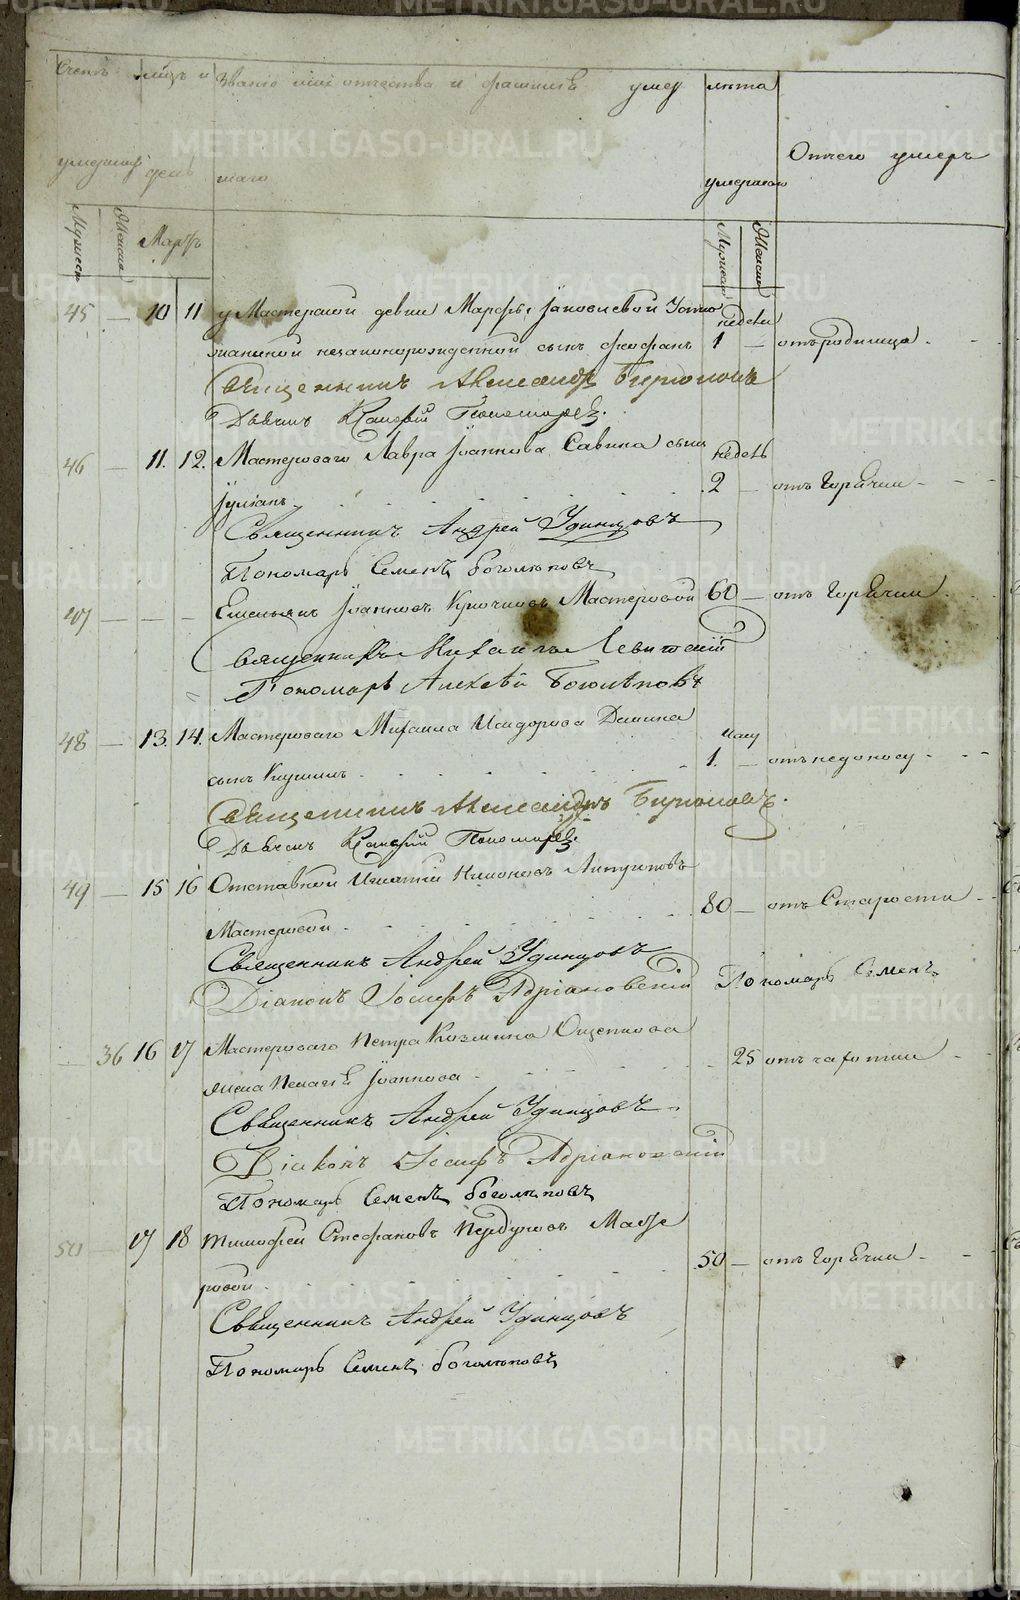 Счетъ лицъ и Званіе имя отчества и фамилія умер лѣта
умершаго день шаго умершаго Отчего умеръ
Мужеск Женска Мартъ Мужеска Женска
45 — 10 11 у Мастерской девки Марфы Іаковлевой недели
незаконорожденной сынъ Феофанъ 1 — отъ родимца
Священникъ Александръ Бирюковъ
Дьячекъ Пономаревъ
46 — 11. 12. Мастероваго Лавра Іоаннова Савина сынъ недель
Іуліанъ 2 — отъ Горячки
Священникъ Андрей Удинцовъ
Пономарь Семенъ Боголѣповъ
47 — — — Емельянъ Іоанновъ Крючковъ Мастеровой 60 — отъ Горячки
Священникъ Михаилъ Левитскій
Пономарь Алексѣй Боголѣповъ
48 — 13. 14. Мастероваго Михаила Исидорова Демина часу
сынъ 1. — отъ недоносу
Священникъ Александръ Бирюковъ
Дьячекъ Пономаревъ
49 — 15 16 Отставной Игнатій Антроповъ
Мастеровой 80 — отъ Старости
Священникъ Андрей Удинцовъ
Діаконъ Іосифъ Адріановскій Пономарь Семенъ
— 36 16 17 Мастероваго Петра Козмина Ощепкова
жена Пелагѣя Іоаннова 25 отъ чахотки
Священникъ Андрей Удинцовъ
Діаконъ Іосифъ Адріановскій
Пономарь Семенъ Боголѣповъ
50 — 17 18 Тимофей Стефановъ Масте
ровой 50 — отъ Горячки
Священникъ Андрей Удинцовъ
Пономарь Семенъ Боголѣповъ
METRIKI.GASO-URAL.RU